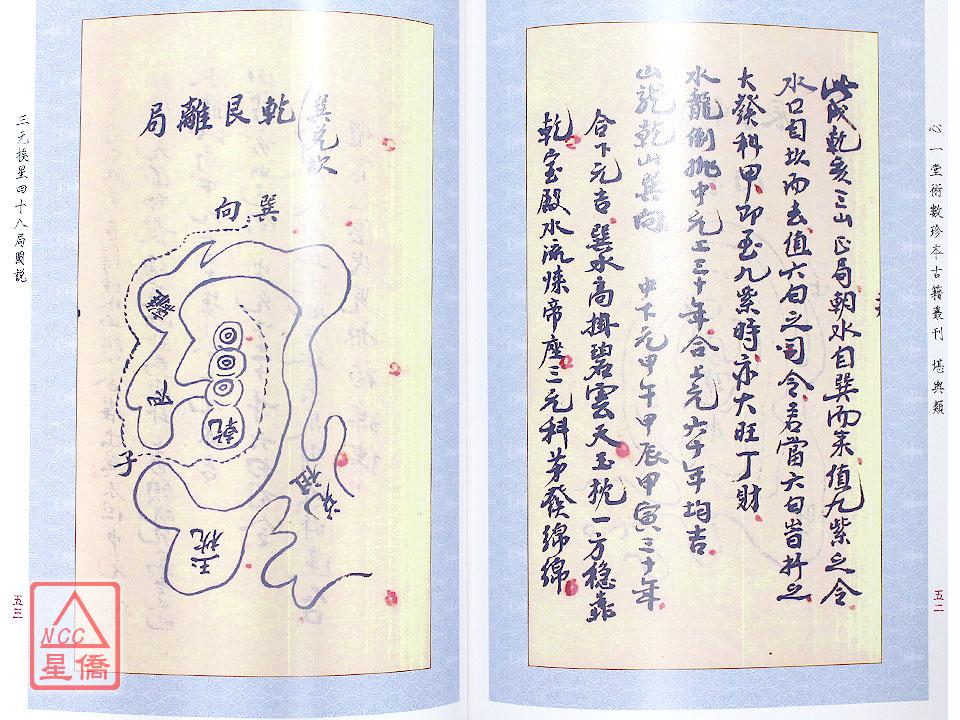 心一堂術數珍本古籍叢刊 堪輿類
五二
此戌乾亥三山正局朝水自巽而來值九紫之令
水口自坎而去值六白之司令若當六白時扦之
大發科甲即至九紫時亦大旺丁財
水龍倒挑中元上三十年合上元六十年均吉
山龍乾山巽向 中下元甲午甲辰甲寅三十年
合下元吉 巽水高掛碧雲天玉枕一方穩靠
乾宝殿水流煉帝座三元科第發綿綿
巽兌坎
乾艮離局
巽
向
乾
子
玉枕
三元挨星四十八局圖說
五三
NCC
星僑